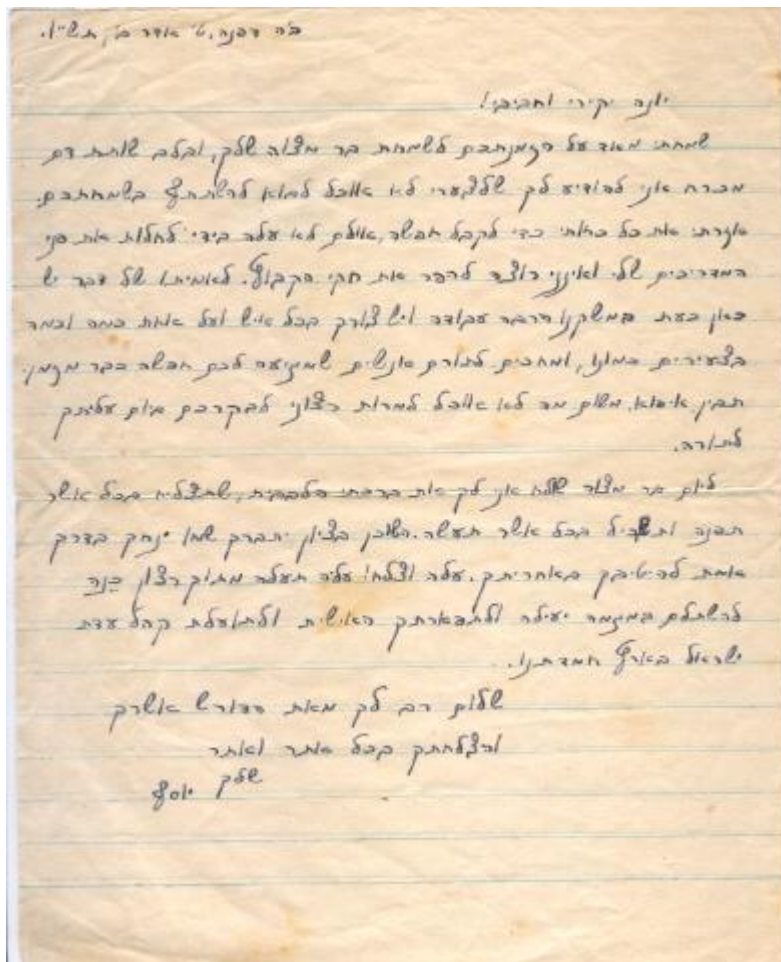 ב"ה דפנה, ט' אדר ב', תש"י.
יונה יקירי וחביבי!
שמחתי מאד על הזמנתכם לשמחת בר מצוה שלך, ובלב שותת דם
מוכרח אני להודיע לך שלצערי לא אוכל לבוא להשתתף בשמחתכם.
אזרתי את כל כחותי כדי לקבל חפשה, אולם לא עלה בידי לחלות את פני
המדריכים שלי ואינני רוצה להפר את חקי הקבוץ. לאמיתו של דבר יש
כאן כעת במשקנו הרבה עבודה ויש צורך בכל איש ועל אחת כמה וכמה
בצעירים כמונו, ומחכים לתורם אנשים שמגיעה להם חפשה כבר מזמן.
תבין איפוא, משום מה לא אוכל למרות רצוני לבקרכם ביום עליתך
לתורה.
ליום בר מצוה שולח אני לך את ברכתי הלבבית, שתצליח בכל אשר
תפנה ותשכיל בכל אשר תעשה. השוכן בציון יתברך שמו ינחך בדרך
אמת להיטיבך באחריתך. עלה וצלח! עליה תעלה מתוך רצון כנה
להשתלם במגמה יעילה ולתפארתך האישית ולתועלת קהל עדת
ישראל בארץ חמדתנו.
שלום רב לך מאת הדורש אשרך
והצלחתך בכל אתר ואתר
שלך יוסף